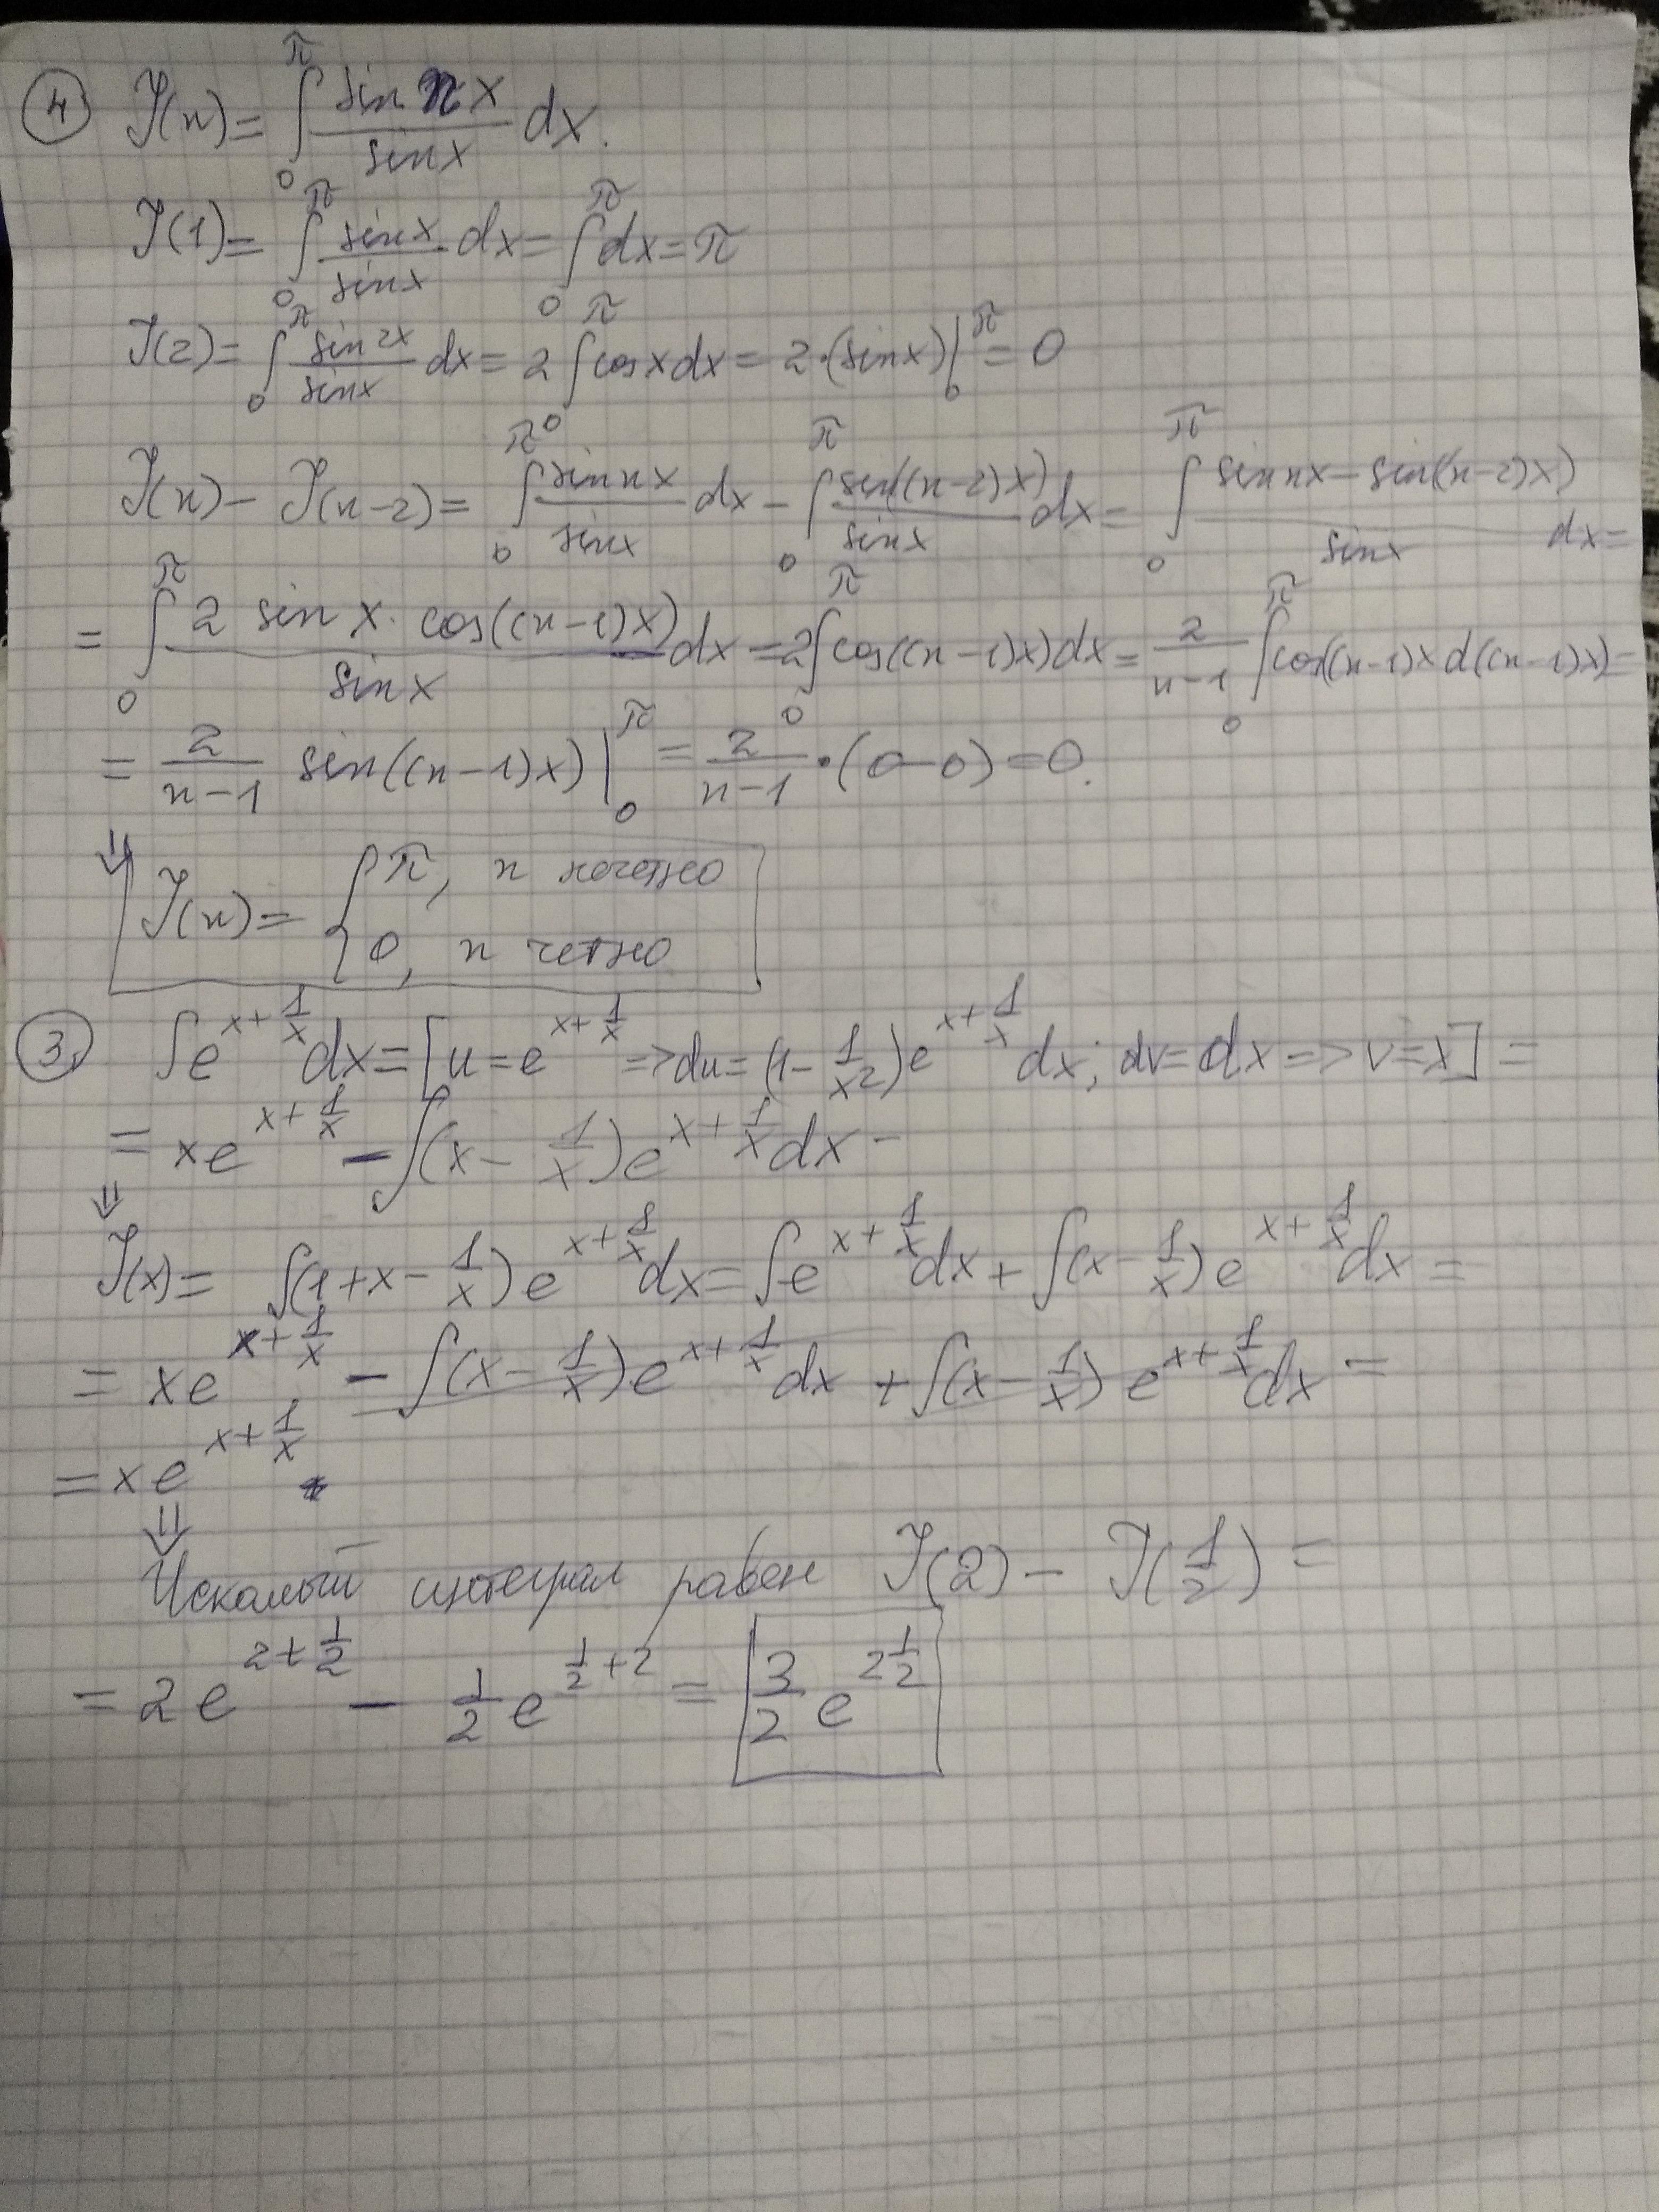 4) J(n) = ∫₀^π (sin nx / sin x) dx.
J(1) = ∫₀^π (sin x / sin x) dx = ∫₀^π dx = π
J(2) = ∫₀^π (sin 2x / sin x) dx = 2 ∫₀^π cos x dx = 2·(sin x)|₀^π = 0
J(n) − J(n−2) = ∫₀^π (sin nx / sin x) dx − ∫₀^π (sin((n−2)x) / sin x) dx = ∫₀^π ((sin nx − sin((n−2)x)) / sin x) dx =
= ∫₀^π (2 sin x · cos((n−1)x) / sin x) dx = 2∫₀^π cos((n−1)x) dx = 2/(n−1) ∫₀^π cos((n−1)x d((n−1)x) =
= 2/(n−1) sin((n−1)x)|₀^π = 2/(n−1) · (0−0) = 0.
⇓ J(n) = { π, n нечетно
0, n четно
3) ∫e^(x+1/x) dx = [u = e^(x+1/x) => du = (1 − 1/x²)e^(x+1/x) dx; dv = dx => v = x] =
= xe^(x+1/x) − ∫(x − 1/x)e^(x+1/x) dx −
⇓
J(x) = ∫(1 + x − 1/x) e^(x+1/x) dx = ∫e^(x+1/x) dx + ∫(x − 1/x) e^(x+1/x) dx =
= xe^(x+1/x) − ∫(x − 1/x) e^(x+1/x) dx + ∫(x − 1/x) e^(x+1/x) dx =
= xe^(x+1/x)
⇓
Искомый интеграл равен J(2) − J(1/2) =
= 2e^(2+1/2) − 1/2 e^(1/2+2) = 3/2 e^(2 1/2)